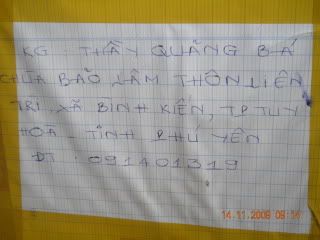 KG - THẦY QUẢNG BÁ
CHÙA BẢO LÂM THÔN LIÊN
TRÌ - XÃ BÌNH KIẾN, TP TUY
HOÀ - TỈNH PHÚ YÊN
ĐT : 091401319
14.11.2009 09:16